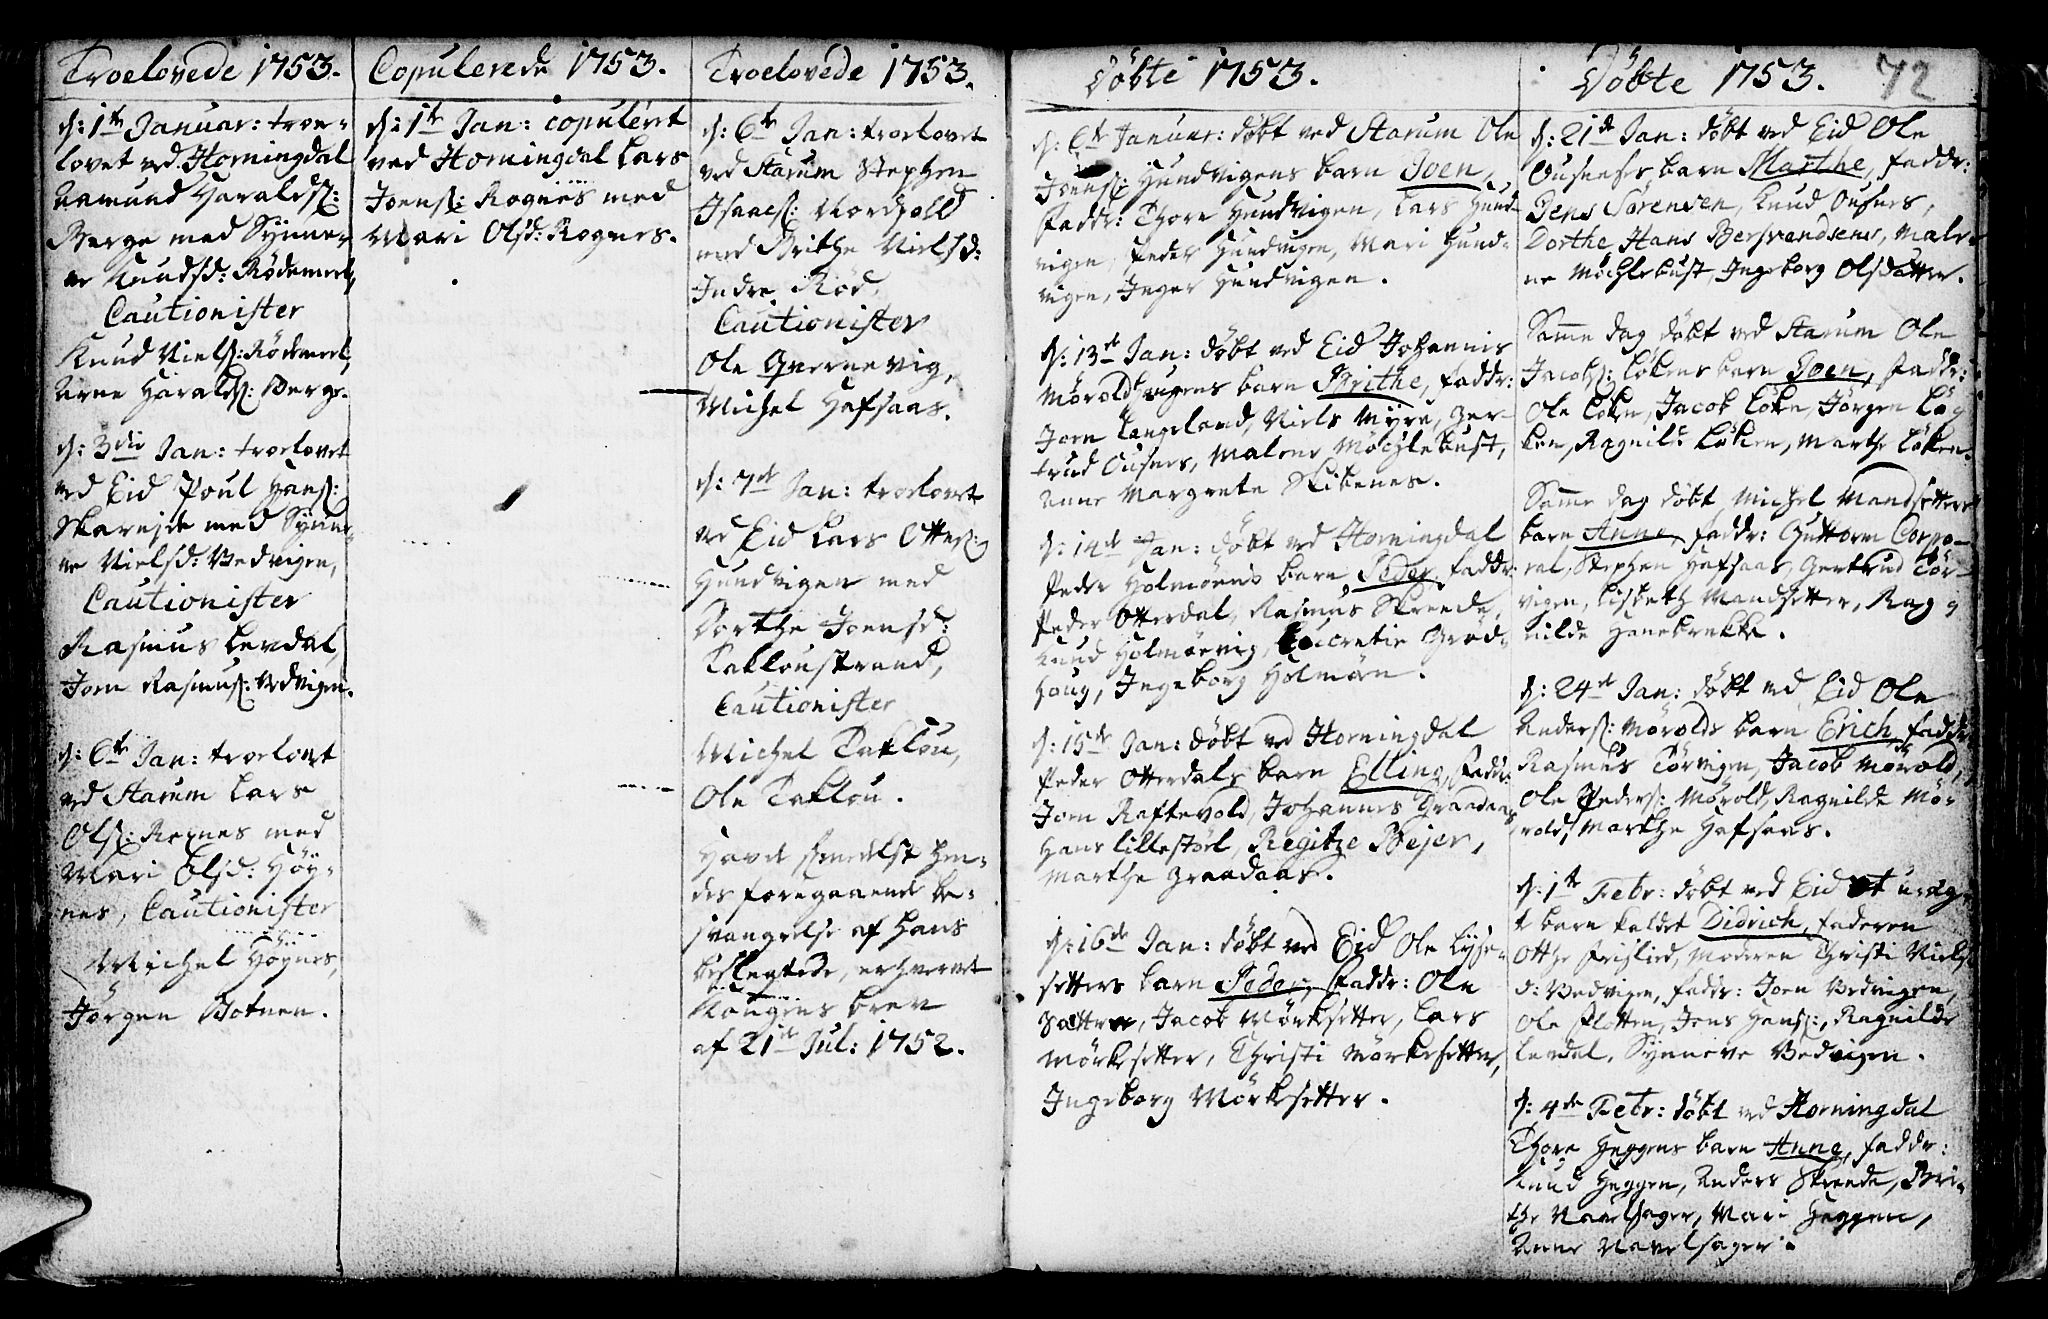 Troelovede 1753.
d: 1te Januar: troe-
lovet ved Horningdal
Aamund Haralds:
Berge med Synne-
ve Knudsd: Rødemeel,
Cautionister
Knud Niels: Rødemeel,
Arne Haralds: Berge.
d: 3die Jan: troelovet
ved Eid Poul Hans:
Skareide med Synne-
ve Nielsd: Vedvigen,
Cautionister
Rasmus Levdal,
Joen Rasmus: Vedvigen.
d: 6te Jan: troelovet
ved Starum Lars
Ols: Rognes med
Mari Olsd: Høy-
nes, Cautionister
Michel Höynes,
Jørgen Botnen.
Copulerede 1753.
d: 1te Jan: copuleret
ved Horningdal Lars
Joens: Rognes med
Mari Olsd: Rognes.
Troelovede 1753.
d: 6te Jan: troelovet
ved Starum Stephen
Isaacs: Nordfold
med Brithe Nielsd:
Indre Rød,
Cautionister
Ole Qvernevig,
Michel Hafsaas.
d: 7de Jan: troelovet
ved Eid Lars Ottes:
Hundvigen med
Dorthe Joensd:
Takloustrand,
Cautionister
Michel Taklou,
Ole Taklou.
Havde formedelst hen-
des foregaaende be-
svangrelse af hans
beslegtede, erhvervet
Kongens brev
af 21de Jul: 1752.
Döbte 1753.
d: 6te Januar: døbt ved Starum Ole
Joens: Hundvigens barn Joen,
Faddr: Thore Hundvigen, Lars Hund-
vigen, Peder Hundvigen, Mari Hund-
vigen, Inger Hundvigen.
d: 13de Jan: døbt ved Eid Johannis
Møroldhougens barn Brithe, faddr:
Joen Langeland, Niels Myre, Ger-
trud Ousnes, Malene Möchlebust,
Anne Margrete Skibenes.
d: 14de Jan: døbt ved Horningdal
Peder Holmøens barn Peder, faddr:
Peder Otterdal, Rasmus Skreede,
Knud Holmøevig, Lucretie Grød-
houg, Ingeborg Holmøen.
d: 15de Jan: døbt ved Horningdal
Peder Otterdals barn Elling, Faddr:
Joen Raftevold, Johannes Graadaas,
Hans Lillestøel, Regitze Bejer,
Marthe Graadaas.
d: 16de Jan: døbt ved Eid Ole Lysse-
setters barn Peder, Faddr: Ole
Sætren, Jacob Mørksetter, Lars
Mørkesetter, Christi Mørkesetter,
Ingeborg Mørkesetter.
Döbte 1753. 72
d: 21de Jan: døbt ved Eid Ole
Ousnes's barn Marthe, faddr:
Jens Sørensen, Knud Ousnes,
Dorthe Hans Bersvendsens, Male-
ne Möchlebust, Ingeborg Olsdatter.
Samme dag døbt ved Starum Ole
Jacobs: Løkens barn Joen, Faddr:
Ole Løken, Jacob Løken, Jørgen Lø-
ken, Ragnilde Løken, Marthe Løken.
Samme dag døbt Michel Mandsetters
barn Anne, faddr: Guttorm Corpo-
ral, Stephen Hafsaas, Gertrud Tør-
vigen, Lisbeth Mandsetter, Rag-
nilde Hanebrekke.
d: 24de Jan: døbt ved Eid Ole
Anders: Mørolds barn Erich, faddr:
Rasmus Tørvigen, Jacob Mørold,
Ole Peders: Mørold, Ragnilde Mø-
rold, Marthe Hafsaas.
d: 1te Febr: døbt ved Eid et uægt
barn kaldet Didrich, faderen
Otthe Frislied, moderen Christi Niels-
d: Vedvigen, faddr: Joen Vedvigen,
Ole Flotten, Jens Hans:, Ragnilde
Levdal, Synneve Vedvigen.
d: 4de Febr: døbt ved Horningdal
Thore Heggens barn Anne, faddr:
Knud Heggen, Anders Skreede, Bri-
the Navelsager, Mari Heggen,
Anne Navelsager.